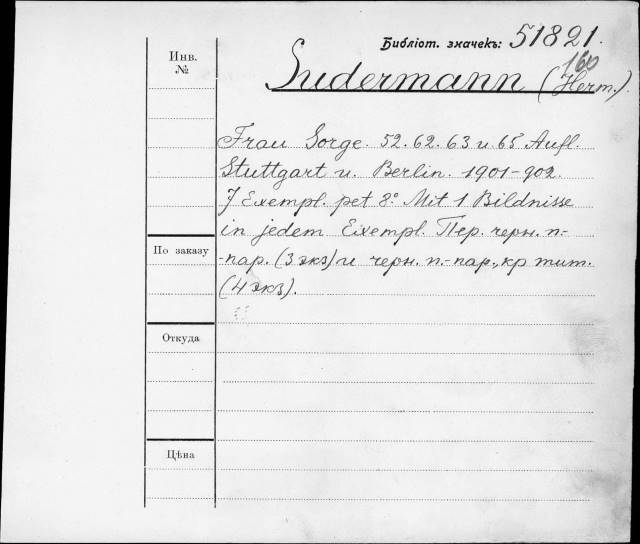 Библіот. значекъ: 51821.
160
Инв.
№
Sudermann (Herm.).
Frau Sorge. 52. 62. 63 u. 65 Aufl.
Stuttgart u. Berlin. 1901-902.
7 Exempl. pet 8° Mit 1 Bildnisse
in jedem Eixempl. Пер. черн. п-
По заказу
-пар. (3 экз) и черн. п.-пар., кр тит.
(4 экз).
Откуда
Цѣна